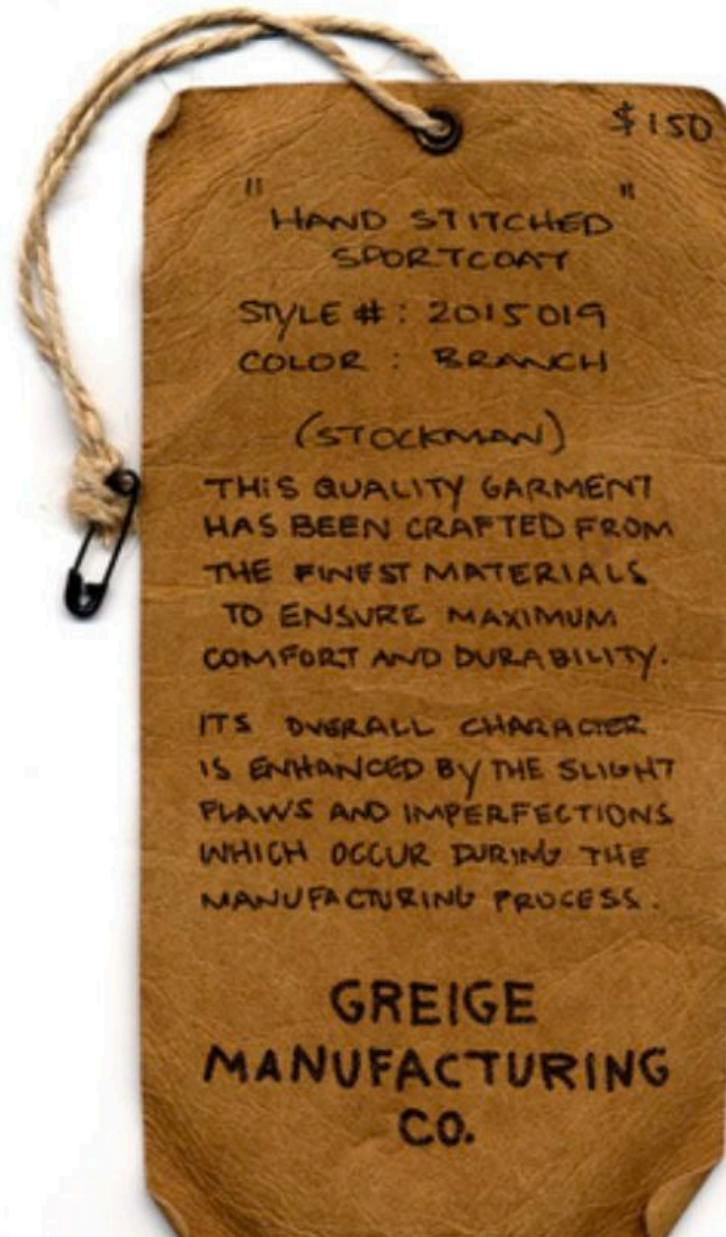 $150
"HAND STITCHED"
SPORTCOAT
STYLE #: 2015019
COLOR : BRANCH
(STOCKMAN)
THIS QUALITY GARMENT
HAS BEEN CRAFTED FROM
THE FINEST MATERIALS
TO ENSURE MAXIMUM
COMFORT AND DURABILITY.
ITS OVERALL CHARACTER
IS ENHANCED BY THE SLIGHT
FLAWS AND IMPERFECTIONS
WHICH OCCUR DURING THE
MANUFACTURING PROCESS.
GREIGE
MANUFACTURING
CO.